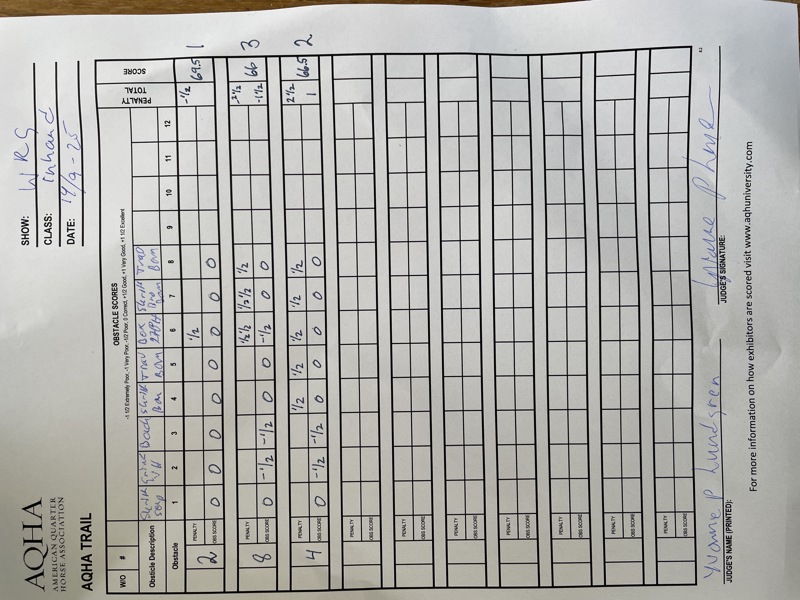 AQHA
AMERICAN QUARTER
HORSE ASSOCIATION
AQHA TRAIL
SHOW: WRG
CLASS: inhand
DATE: 14/9-25
OBSTACLE SCORES
-1 1/2 Extremely Poor, -1 Very Poor, -1/2 Poor, 0 Correct, +1/2 Good, +1 Very Good, +1 1/2 Excellent
W/O # PENALTY TOTAL SCORE
Obsticle Description Back Box
Obstacle 1 2 3 4 5 6 7 8 9 10 11 12
2 PENALTY 1/2 -1/2 69.5 1
OBS SCORE 0 0 0 0 0 0 0 0
8 PENALTY 1/2 1/2 1/2 1/2 1/2 -2 1/2 66 3
OBS SCORE 0 -1/2 -1/2 0 0 -1/2 0 0 -1 1/2
4 PENALTY 1/2 1/2 1/2 1/2 1/2 2 1/2 66.5 2
OBS SCORE 0 -1/2 -1/2 0 0 0 0 0 1
PENALTY
OBS SCORE
PENALTY
OBS SCORE
PENALTY
OBS SCORE
PENALTY
OBS SCORE
PENALTY
OBS SCORE
PENALTY
OBS SCORE
PENALTY
OBS SCORE
Yvonne P Lundgren
JUDGE'S NAME (PRINTED):
JUDGE'S SIGNATURE:
For more information on how exhibitors are scored visit www.aqhuniversity.com